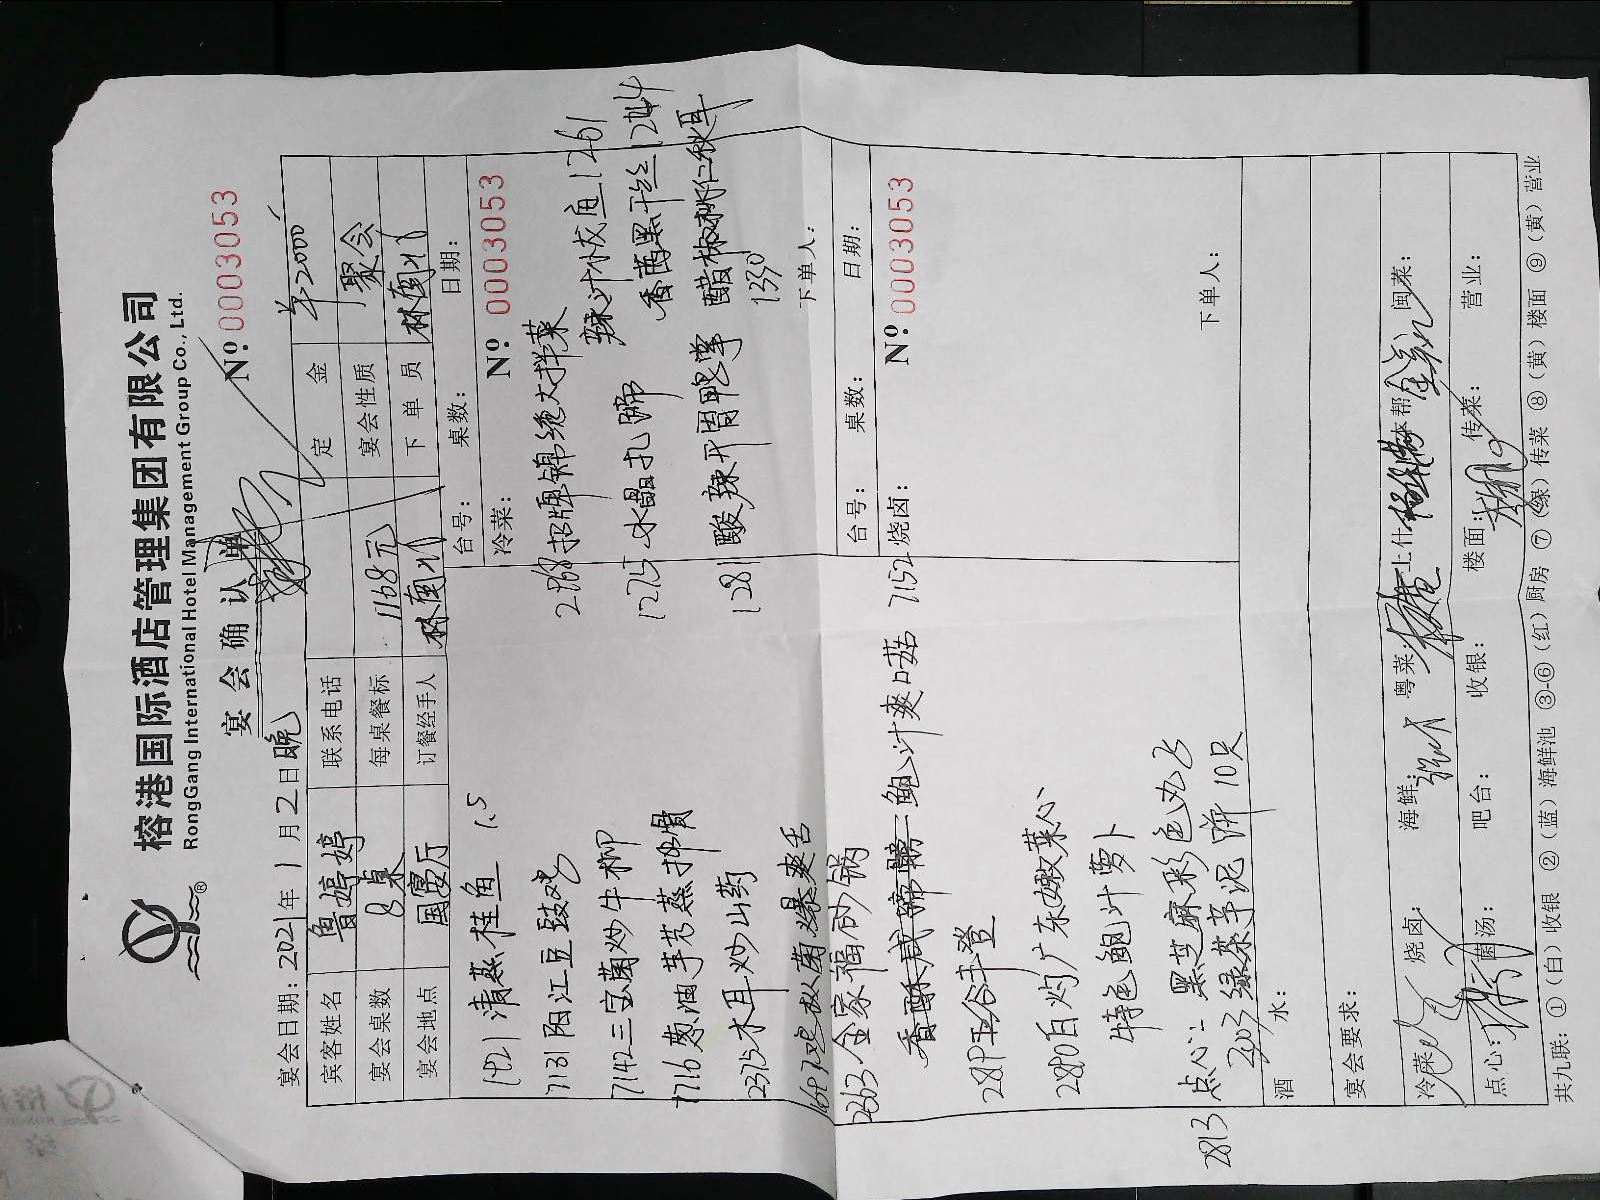 榕港国际酒店管理集团有限公司
RongGang International Hotel Management Group Co., Ltd.
宴会确认单
Nº:0003053
宴会日期:2021年1月2日晚
宾客姓名 鲁婷婷 联系电话 定金 ¥2000
宴会桌数 8桌 每桌餐标 1168元 宴会性质 聚会
宴会地点 国宴厅 订餐经手人 下单员
1421 清蒸桂鱼 1.5
7131 阳江豆豉鸡
7142 三宝菌炒牛柳
7716 葱油芋艿蒸排骨
2375 木耳炒山药
2363 金家福砂锅
鲍汁爽口菇 7152
2819 五谷丰登
2880 白灼广东嫩菜心
特色鲍汁萝卜
2813 点心: 黑芝麻彩色丸子
2403 绿茶芋泥饼 10只
台号: 桌数: 日期:
冷菜: Nº 0003053
2868 招牌锦绝大拌菜
辣汁伏鱼 1261
1275 水晶扎蹄
香茜黑干丝 1244
1281 酸辣开胃鸭掌
醋椒桃仁秋耳
1330
下单人:
台号: 桌数: 日期:
烧卤: Nº 0003053
下单人:
酒水:
宴会要求:
冷菜: 烧卤: 海鲜: 粤菜: 上什: 本帮: 闽菜:
点心: 菌汤: 吧台: 收银: 楼面: 传菜: 营业:
共九联:①(白)收银 ②(蓝)海鲜池 ③-⑥(红)厨房 ⑦(绿)传菜 ⑧(黄)楼面 ⑨(黄)营业